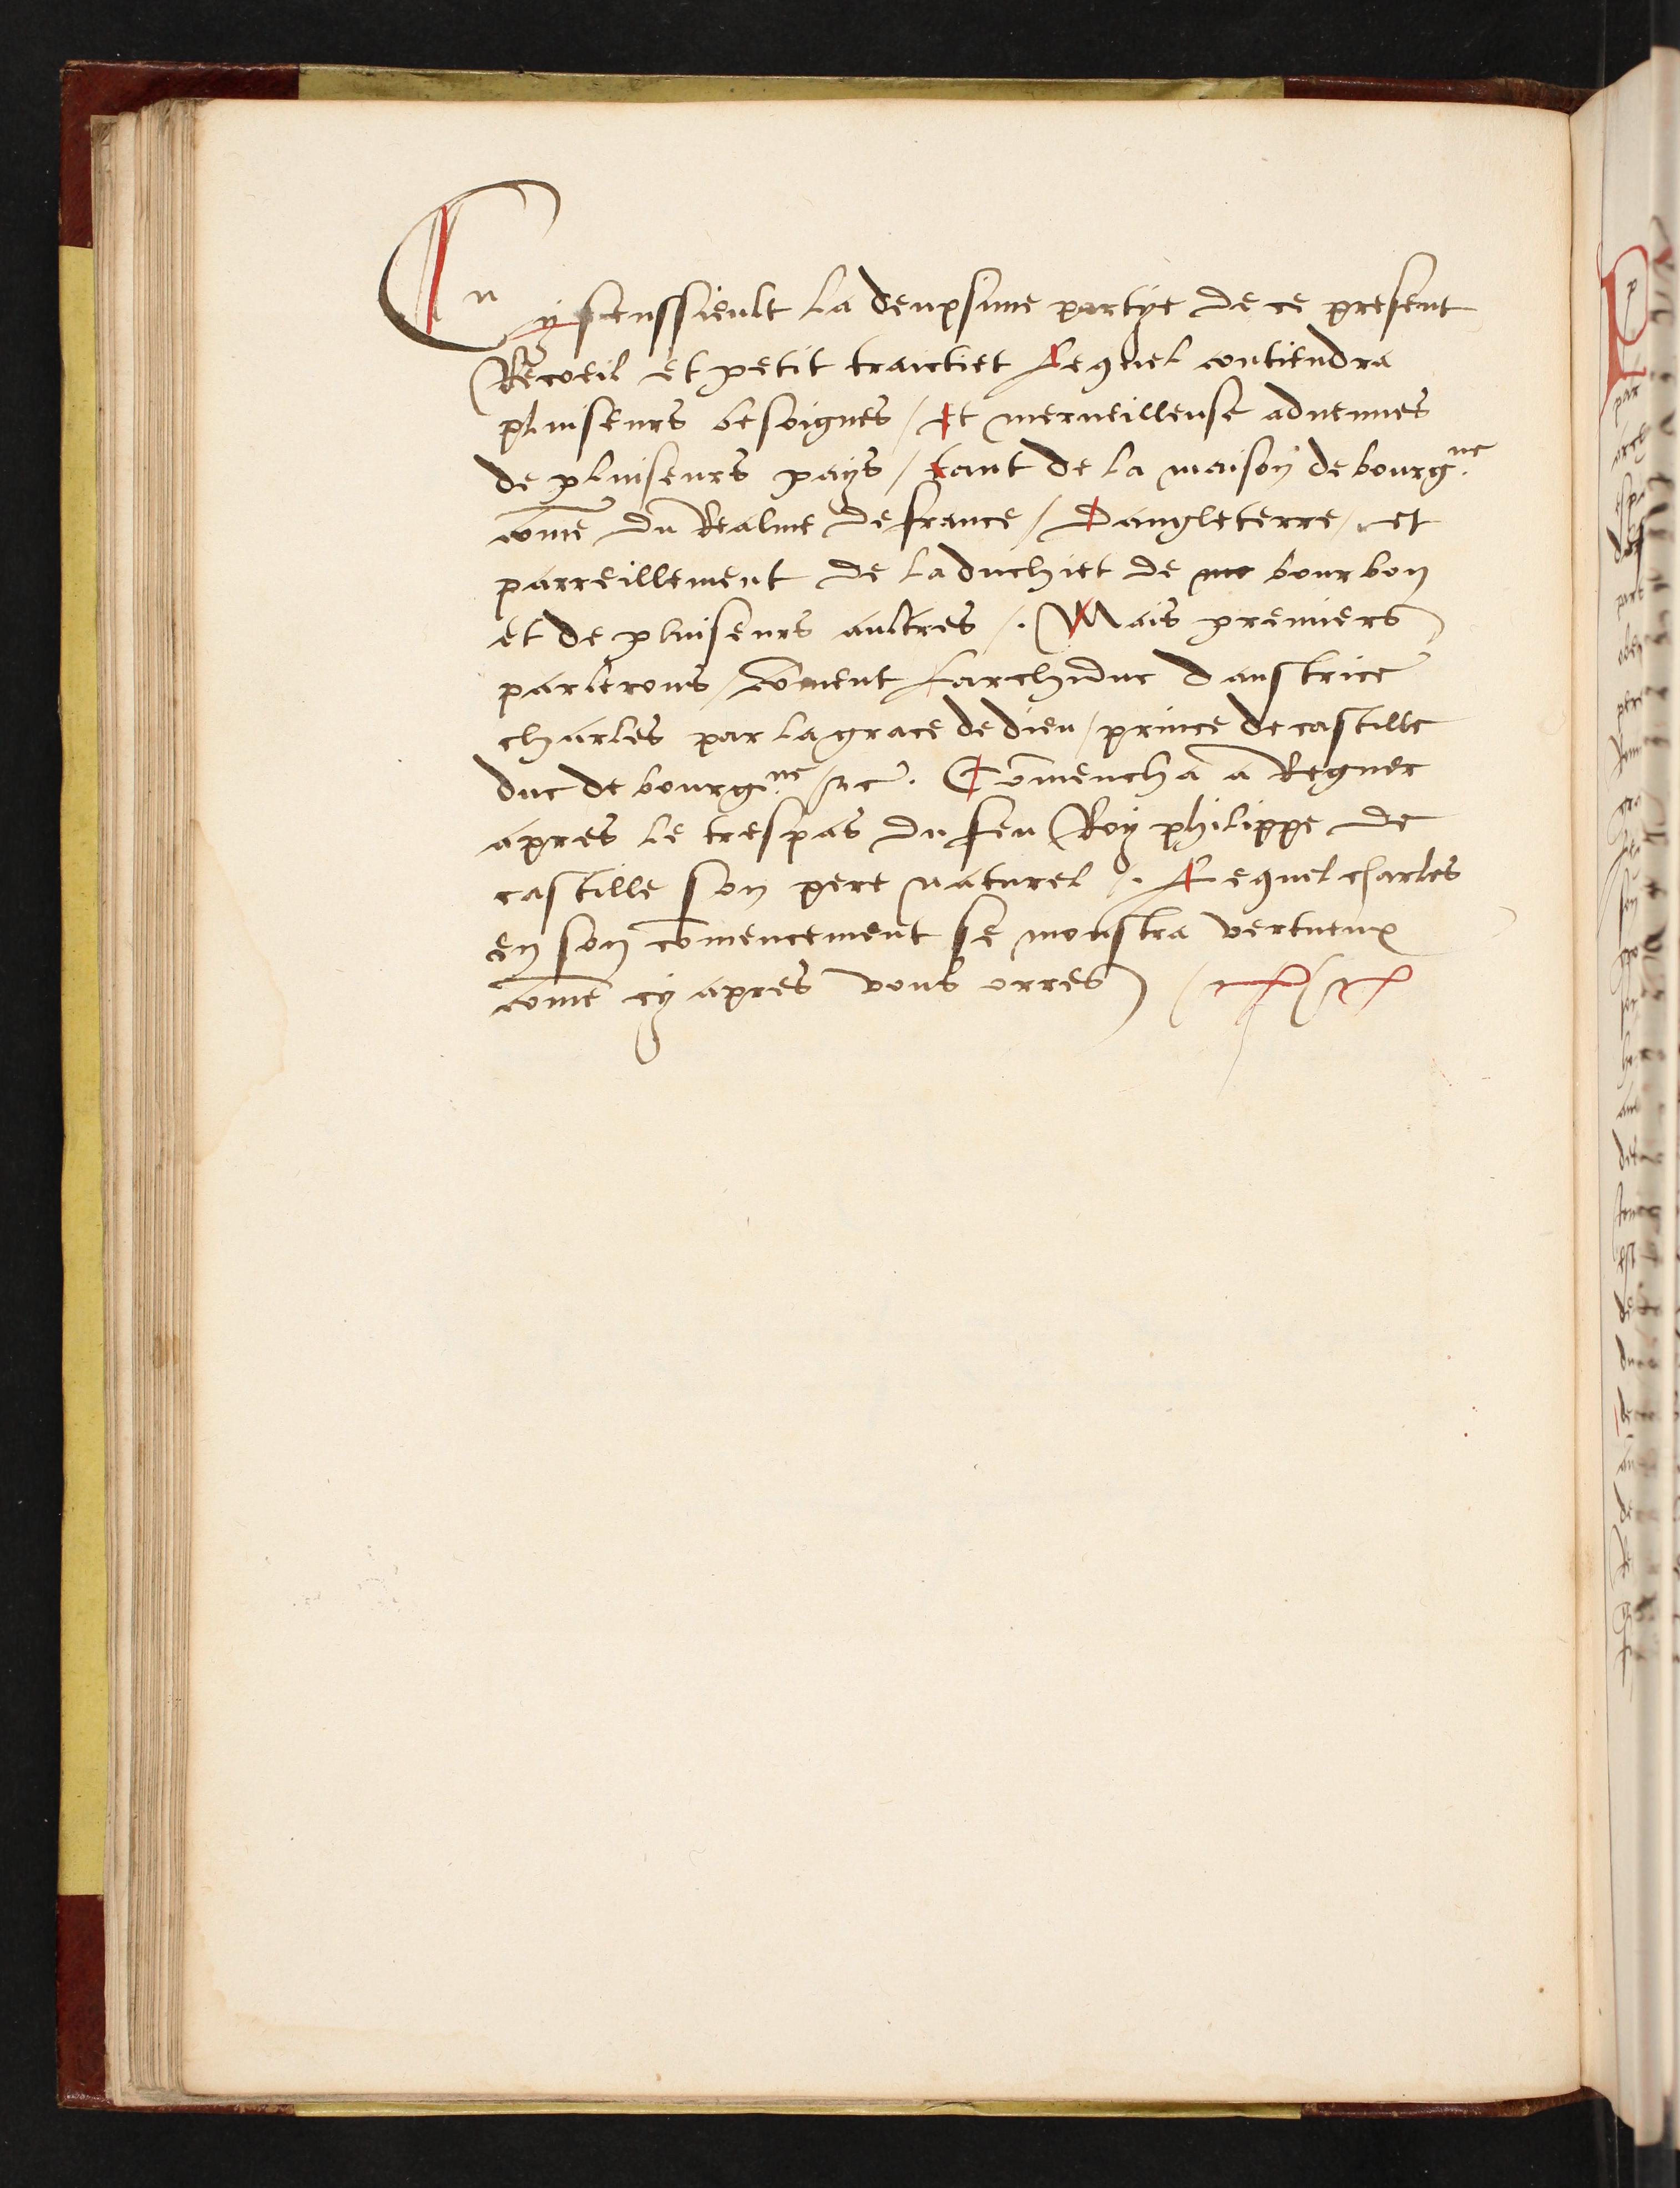 Cy senssieult la deuxsime partye de ce present
Recoeil et petit traictiet Lequel contiendra
pluiseurs besoignes / Et merveilleuse advenues
de pluiseurs pays / tant de la maison de bourg.ne
come du Realme de france / Dangleterre / et
parreillement de la duchiet de bourbon
et de pluiseurs aultres /. Mais premiers
parlerons / coment Larchiduc daustrice
charles par la grace de dieu / prince de castille
duc de bourg.ne / &c. Comencha a Regner
apres le trespas du feu Roy philippe de
castille son pere naturel /. Lequel charles
en son comencement se monstra vertueux
come cy apres vous orres